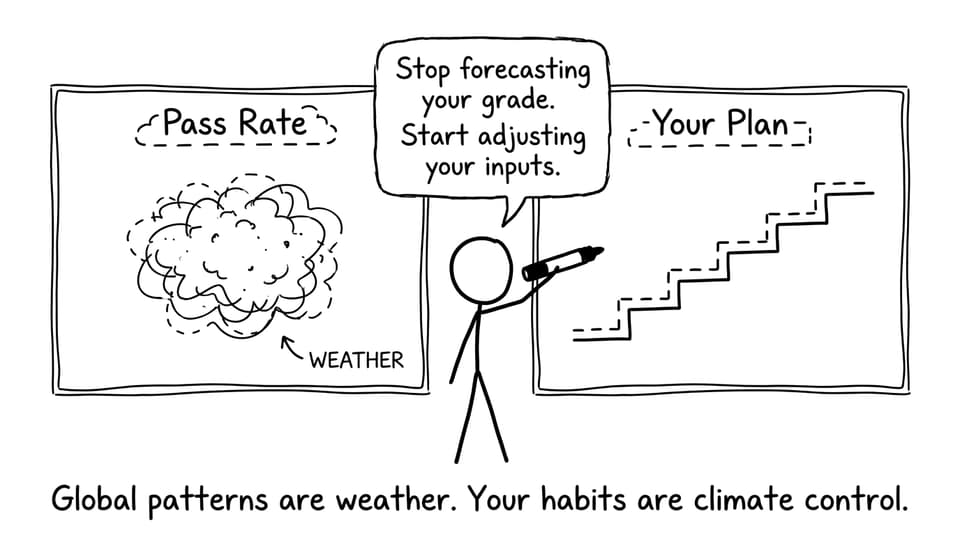 Stop forecasting
your grade.
Start adjusting
your inputs.
Pass Rate
WEATHER
Your Plan
Global patterns are weather. Your habits are climate control.